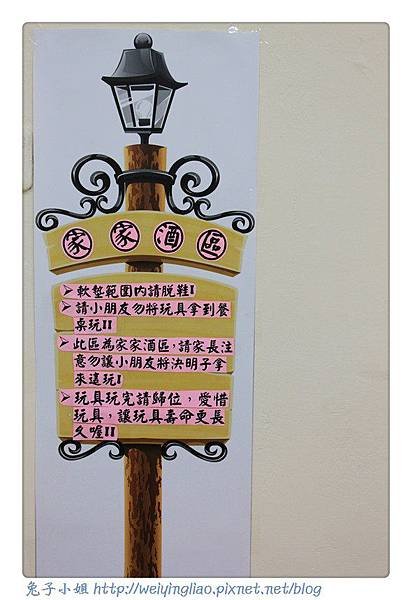 家家酒區
➤軟墊範圍內請脫鞋!
➤請小朋友勿將玩具拿到餐
桌玩!!
➤此區為家家酒區,請家長注
意勿讓小朋友將決明子拿
來這玩!
➤玩具玩完請歸位,愛惜
玩具,讓玩具壽命更長
久喔!!
兔子小姐 http://weiyingliao.pixnet.net/blog